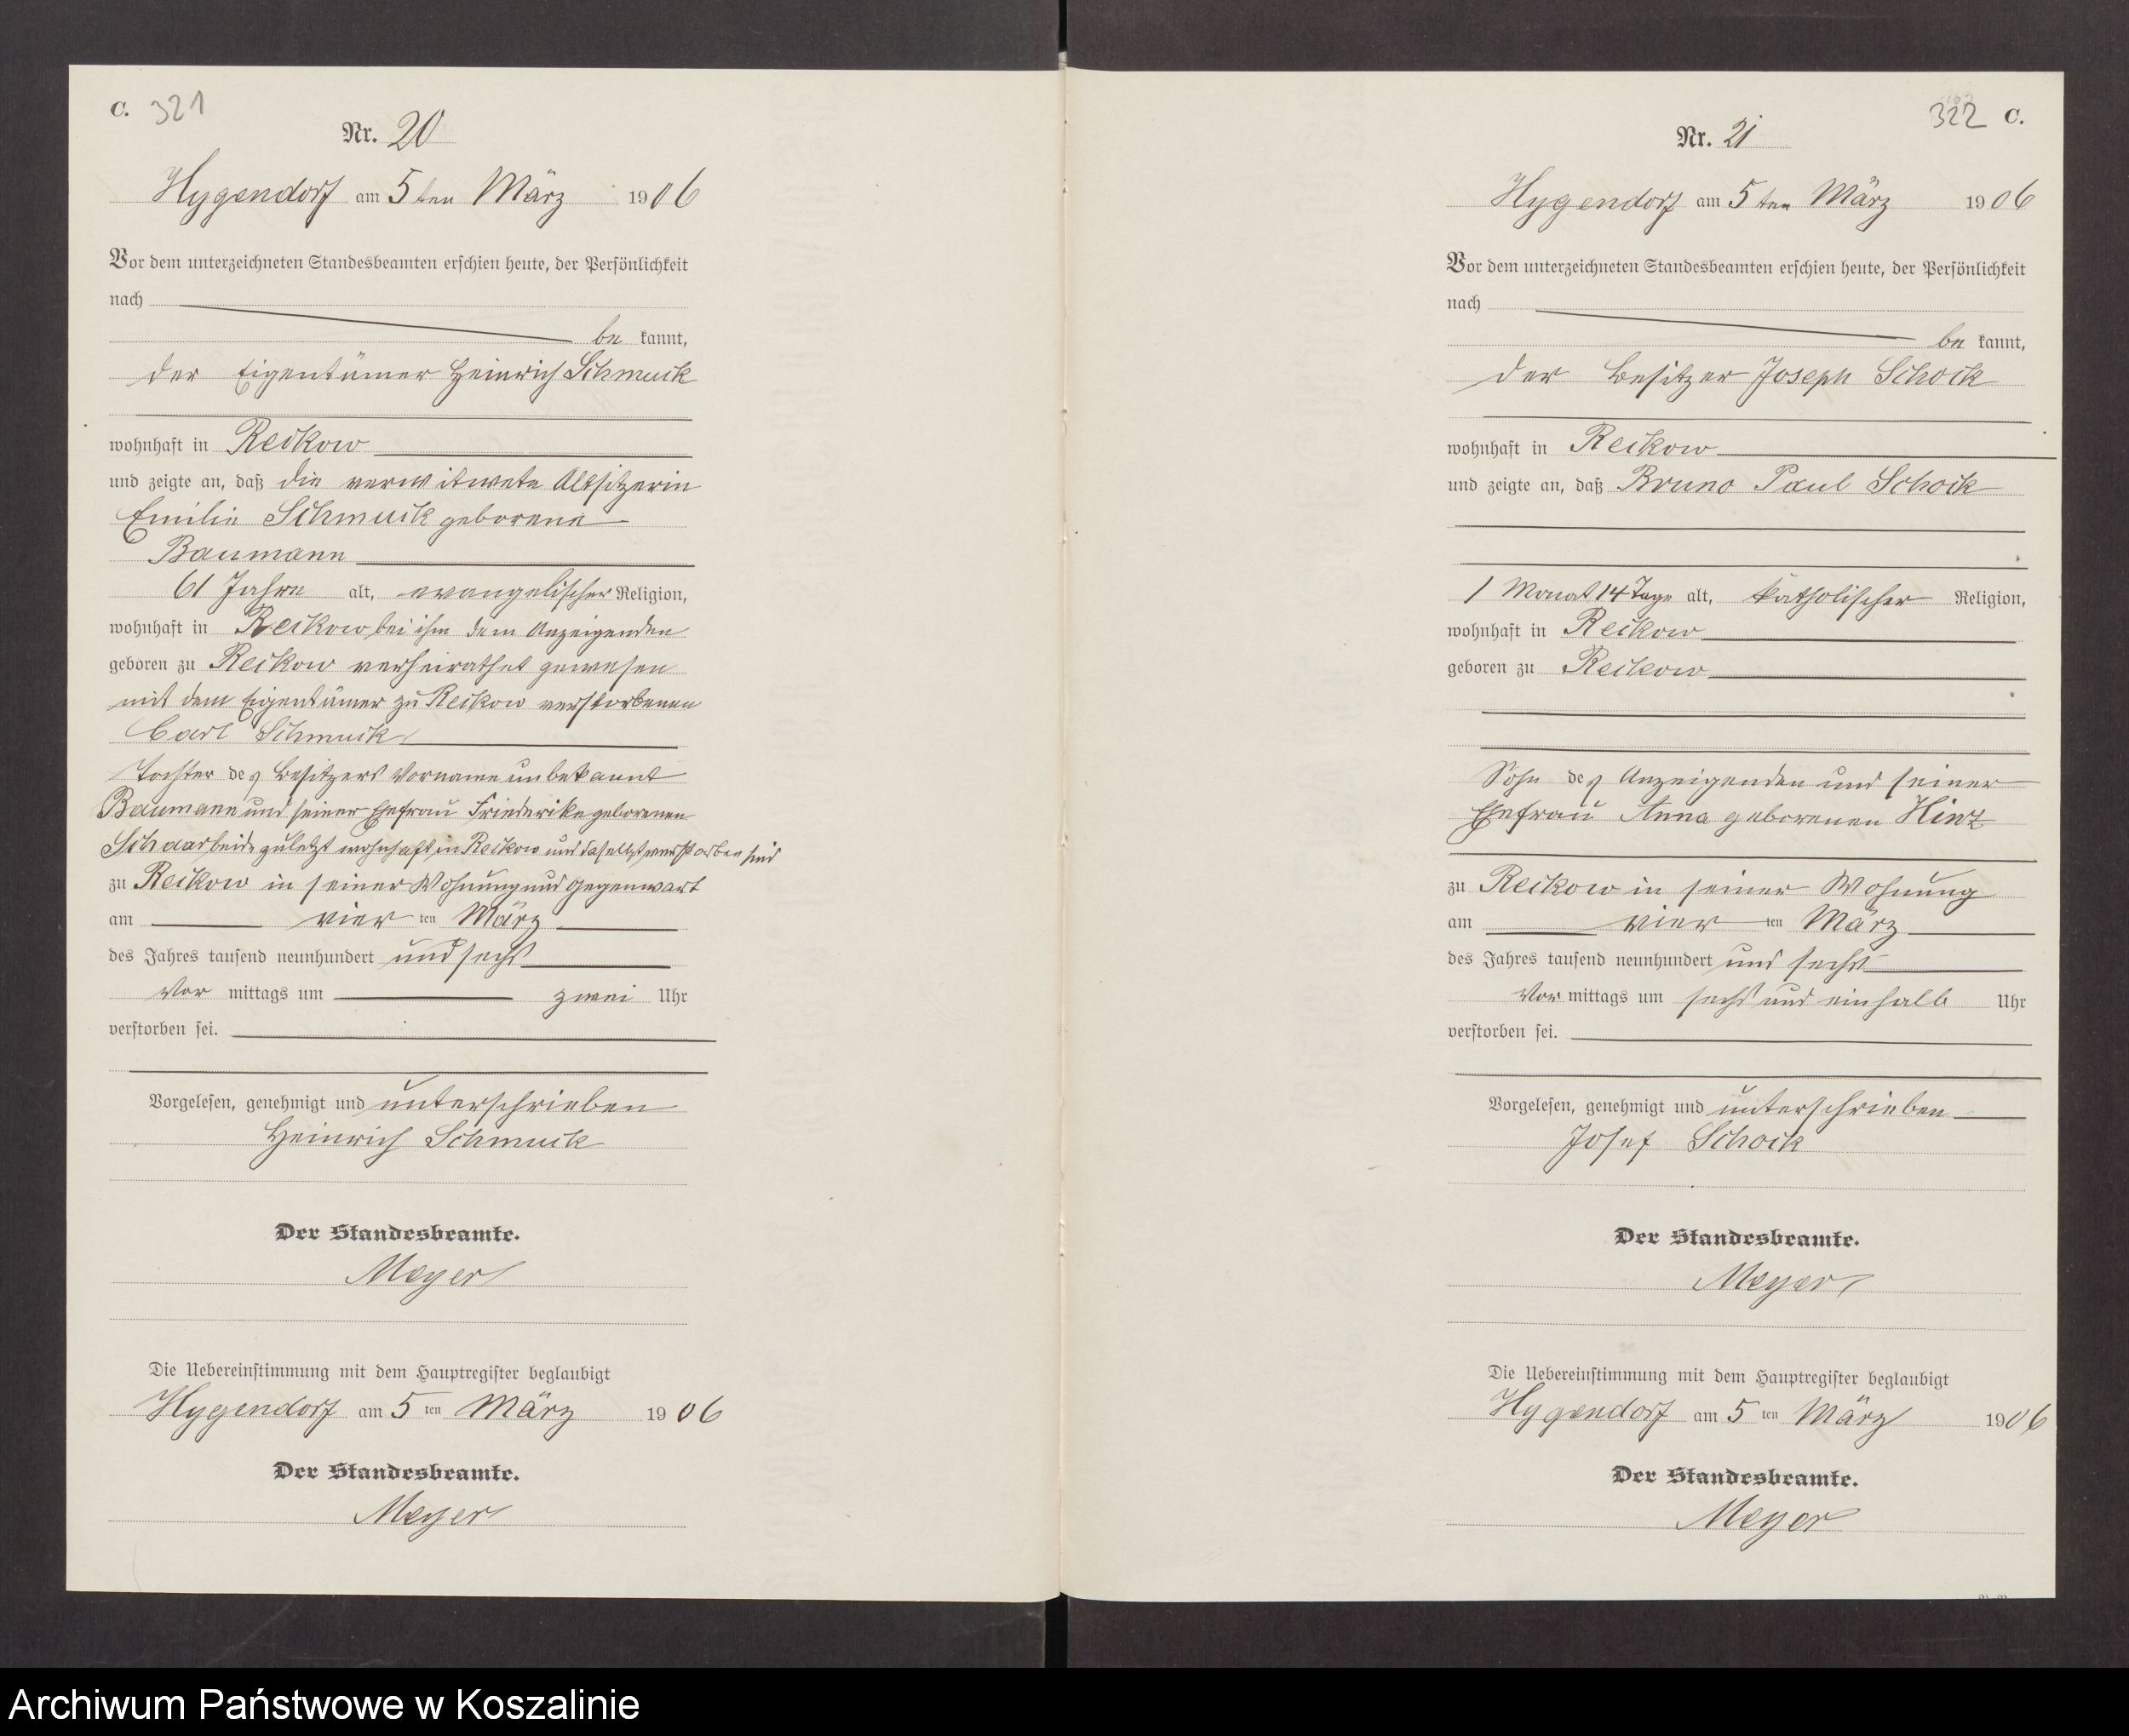 C. 321
Nr. 20
Hygendorf am 5ten März 1906
Vor dem unterzeichneten Standesbeamten erschien heute, der Persönlichkeit
nach
be kannt,
der Eigentümer Heinrich Schmuck
wohnhaft in Reckow
und zeigte an, daß die verwitwete Altsitzerin
Emilie Schmuck geborene
Baumann
61 Jahre alt, evangelischer Religion,
wohnhaft in Reckow bei ihm dem Anzeigenden
geboren zu Reckow verheirathet gewesen
mit dem Eigentümer zu Reckow verstorbenen
Carl Schmuck
Tochter des Besitzers Vorname unbekannt
Baumann und seiner Ehefrau Friederike geborenen
Schaar beide zuletzt wohnhaft in Reckow und daselbst verstorben sind
zu Reckow in seiner Wohnung und Gegenwart
am vier ten März
des Jahres tausend neunhundert und sechs
Vor mittags um zwei Uhr
verstorben sei.
Vorgelesen, genehmigt und unterschrieben
Heinrich Schmuck
Der Standesbeamte.
Meyer
Die Uebereinstimmung mit dem Hauptregister beglaubigt
Hygendorf am 5 ten März 1906
Der Standesbeamte.
Meyer
322 C.
Nr. 21
Hygendorf am 5ten März 1906
Vor dem unterzeichneten Standesbeamten erschien heute, der Persönlichkeit
nach
be kannt,
der Besitzer Joseph Schock
wohnhaft in Reckow
und zeigte an, daß Bruno Paul Schock
1 Monat 14 Tage alt, katholischer Religion,
wohnhaft in Reckow
geboren zu Reckow
Sohn des Anzeigenden und seiner
Ehefrau Anna geborenen Hinz
zu Reckow in seiner Wohnung
am vier ten März
des Jahres tausend neunhundert und sechs
Vor mittags um sechs und einhalb Uhr
verstorben sei.
Vorgelesen, genehmigt und unterschrieben
Josef Schock
Der Standesbeamte.
Meyer
Die Uebereinstimmung mit dem Hauptregister beglaubigt
Hygendorf am 5 ten März 1906
Der Standesbeamte.
Meyer
Archiwum Państwowe w Koszalinie